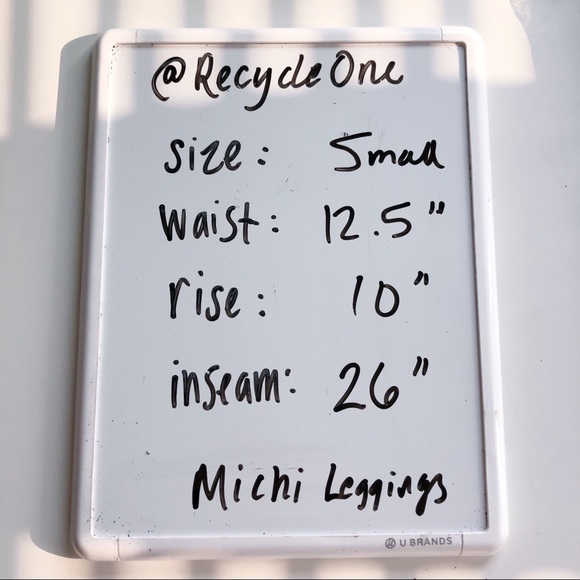 @RecycleOne
size: Small
waist: 12.5"
rise: 10"
inseam: 26"
Michi Leggings
U BRANDS